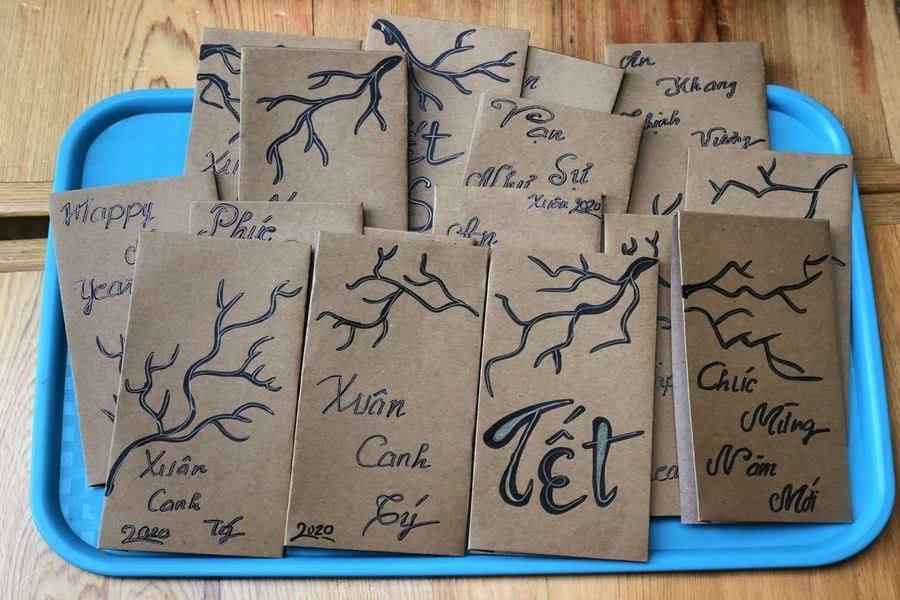 Xu
ết
S
An
Khang
Thịnh
Vượng
Vạn
Như Sự
Xuân 2020
Happy
Year
Phúc
An
Xuân
Canh
2020 Tý
Xuân
Canh
Tý
2020
Tết
Chúc
Mừng
Năm
Mới